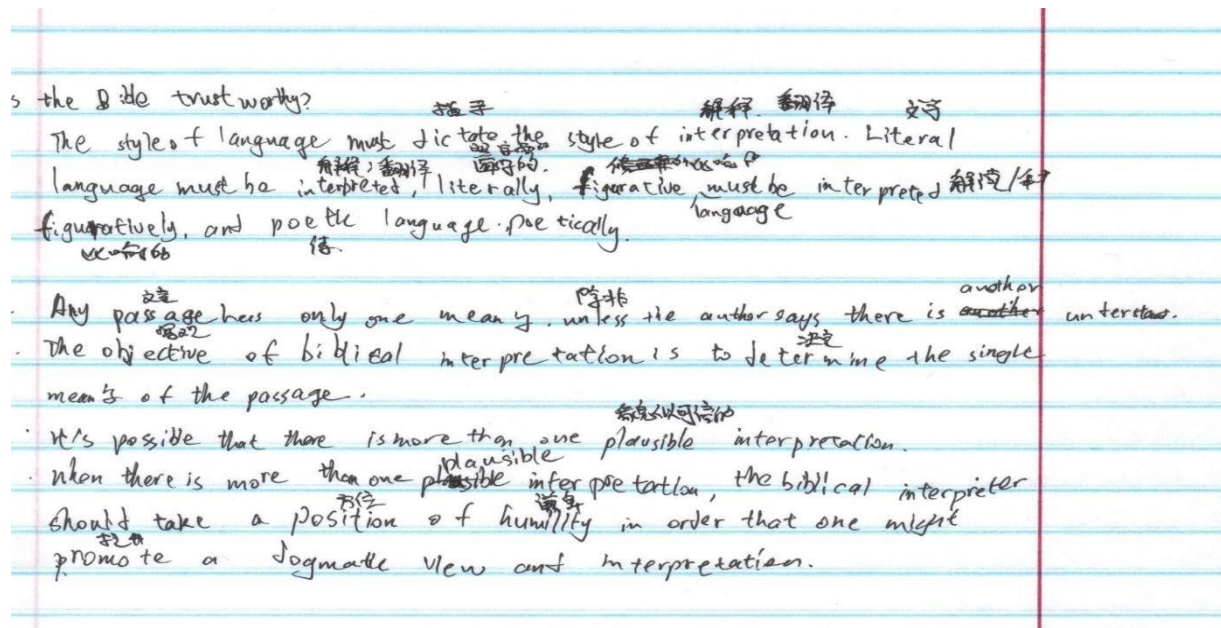 s the Bible trustworthy?
指导 解释. 翻译 文字
The style of language must dictate the style of interpretation. Literal
解释; 翻译 遍字的.
language must be interpreted, literally, figurative must be interpreted
language
figuratively, and poetic language. poetically.
比喻的
文章 除非 another
Any passage has only one meang. unless the author says there is understand.
决定
The objective of biblical interpretation is to determine the single
meang of the passage.
貌似可信的
It's possible that there is more than one plausible interpretation.
plausible
when there is more than one interpretation, the biblical interpreter
方位 谦卑
should take a position of humility in order that one might
promote a dogmatic view and interpretation.